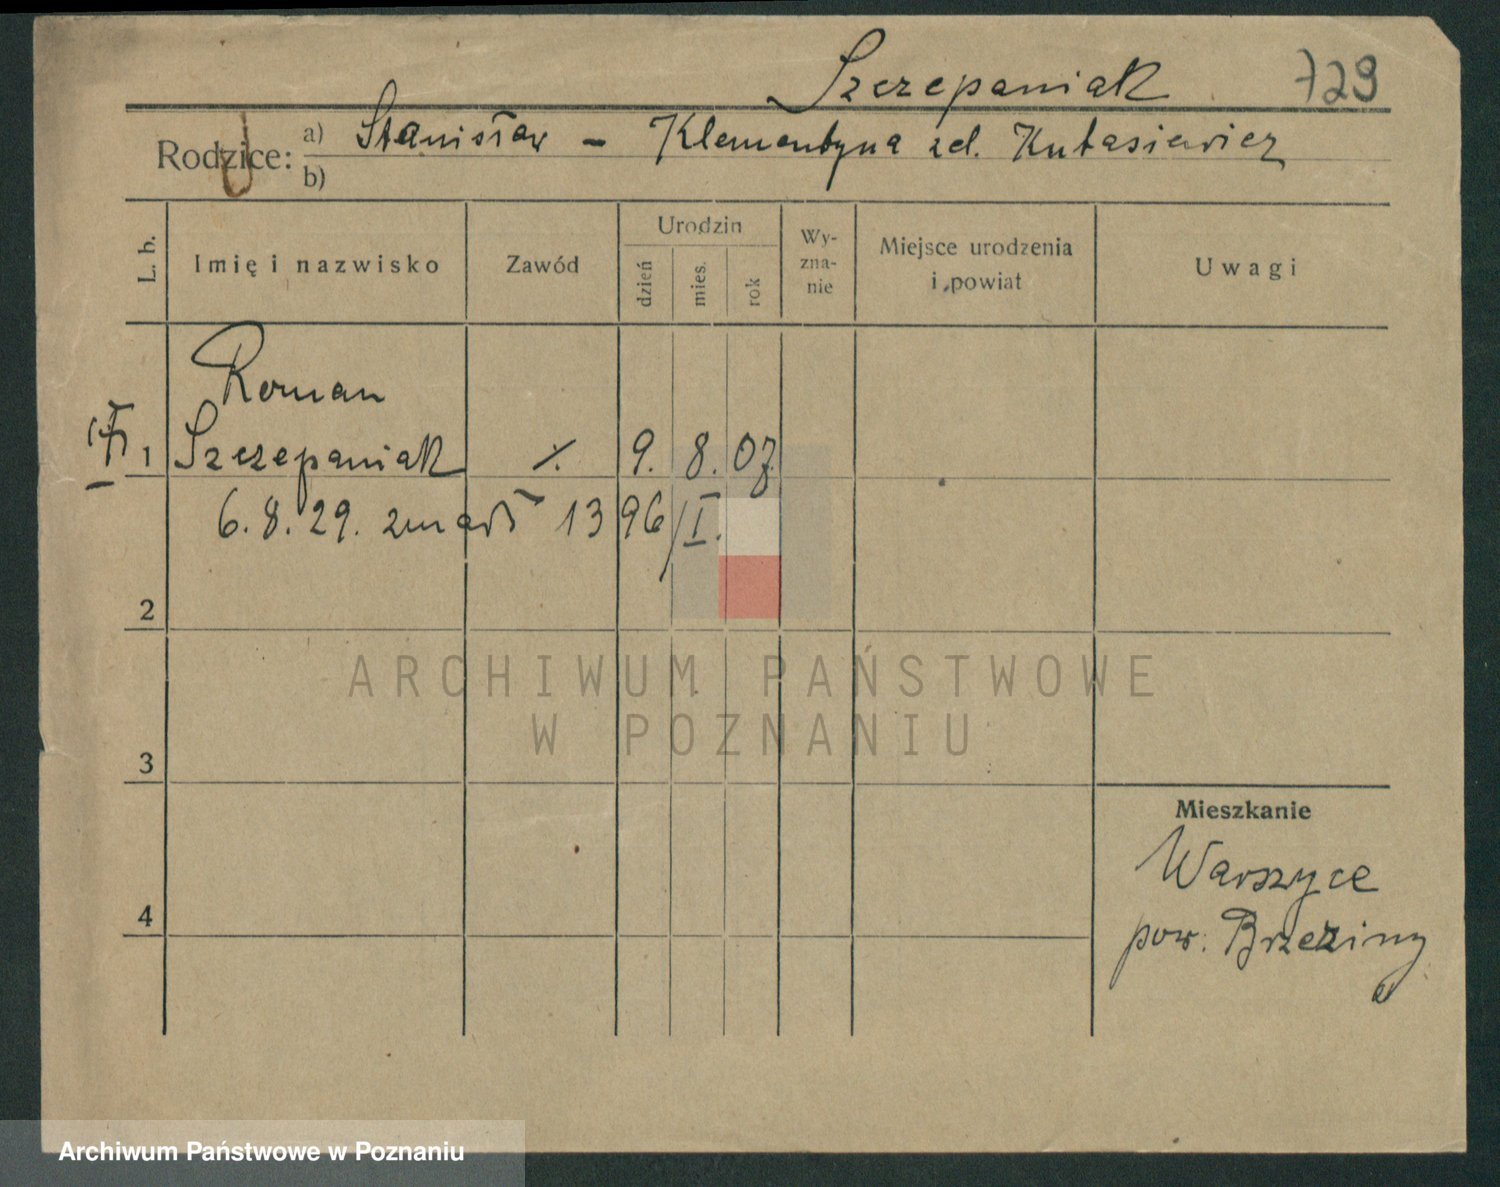 Szczepaniak 729
Rodzice: a) Stanisław - Klementyna zd. Kutasiewicz
b)
L. b. Imię i nazwisko Zawód Urodzin dzień mies. rok Wy-zna-nie Miejsce urodzenia i powiat Uwagi
Roman
1 Szczepaniak ⁒ 9. 8. 07
6.8.29. zmarł 1396/I.
2
3
4
Mieszkanie
Warszyce
pow. Brzeziny
ARCHIWUM PAŃSTWOWE
W POZNANIU
Archiwum Państwowe w Poznaniu